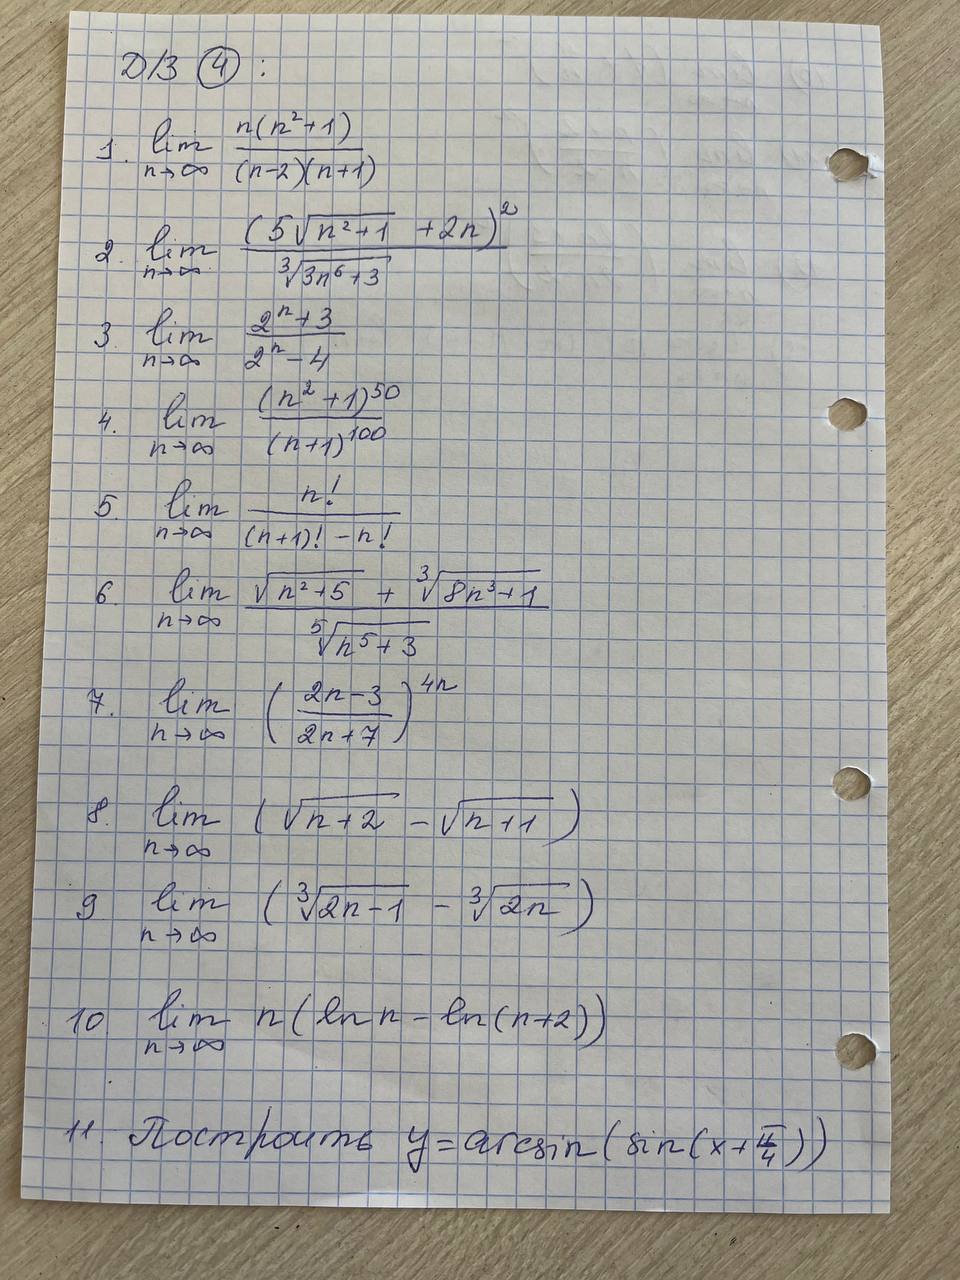 Д/З (4) :
1. lim n→∞ n(n²+1) / (n-2)(n+1)
2. lim n→∞ (5√(n²+1) + 2n)² / ∛(3n⁶+3)
3. lim n→∞ (2ⁿ+3) / (2ⁿ-4)
4. lim n→∞ (n²+1)⁵⁰ / (n+1)¹⁰⁰
5. lim n→∞ n! / ((n+1)! - n!)
6. lim n→∞ (√(n²+5) + ∛(8n³+1)) / ⁵√(n⁵+3)
7. lim n→∞ ((2n-3) / (2n+7))⁴ⁿ
8. lim n→∞ (√(n+2) - √(n+1))
9 lim n→∞ (∛(2n-1) - ∛(2n))
10 lim n→∞ n(ln n - ln(n+2))
11. Построить y = arcsin(sin(x+π/4))